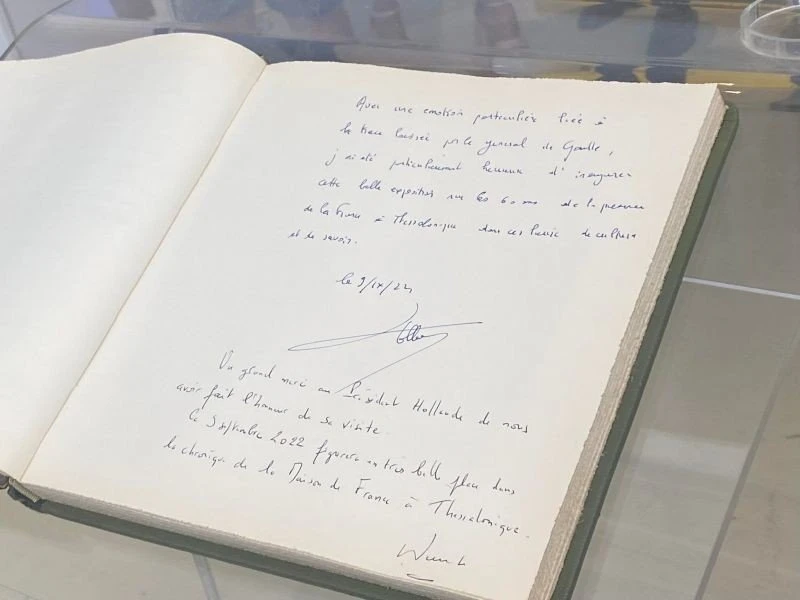 Avec une emotion particulière liée à
la trace laissée par le général de Gaulle,
j'ai été particulièrement heureux d'inaugurer
cette belle exposition sur les 60 ans de la présence
de la France à Thessalonique dans ces lieux de culture
et de savoir.
le 9/IX/22
Un grand merci au Président Hollande de nous
avoir fait l'honneur de sa visite.
Le 9 septembre 2022 figurera en très belle place dans
la chronique de la Maison de France à Thessalonique.